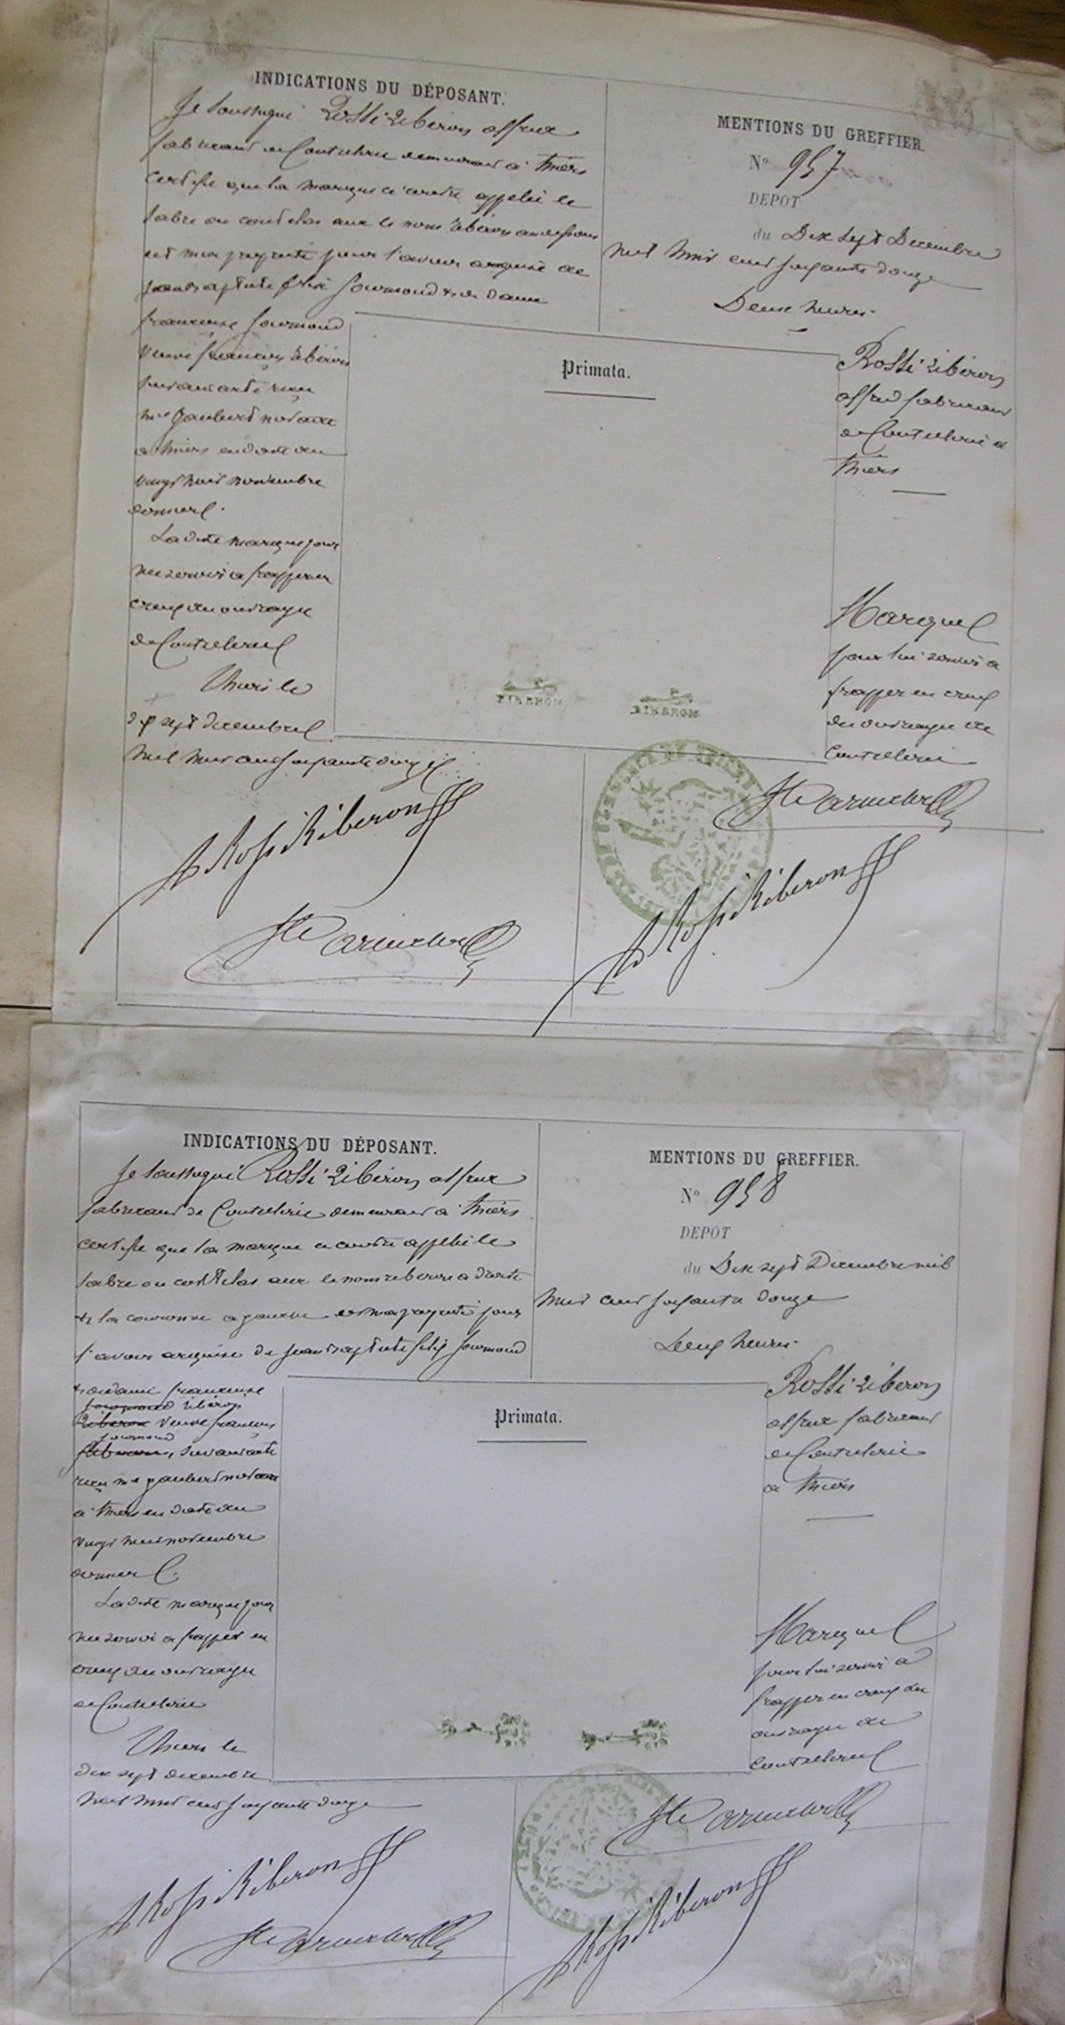 INDICATIONS DU DÉPOSANT.
Je soussigné Rossi Riberon alfred
fabricant de Coutellerie demeurant à Thiers
certifie que la marque ci contre appelée le
sabre ou coutelas avec le nom Riberon au dessous
est ma propriété pour l'avoir acquise de
Jean Baptiste félix Gourmond & de dame
françoise Gourmond
veuve françois Riberon
suivant acte reçu
me Jaubert notaire
a Thiers en date du
vingt huit novembre
dernier.
La dite marque pour
me servir a frapper en
creux des ouvrages
de Coutellerie
Thiers le
dix sept décembre
mil huit cent soixante douze
A Rossi Riberon
MENTIONS DU GREFFIER.
N° 957
DEPOT
du Dix sept Décembre
mil huit cent soixante douze
Deux heures.
Primata.
Rossi Riberon
alfred fabricant
de Coutellerie a
Thiers
Marque
pour lui servir a
frapper en creux
des ouvrages de
Coutellerie
RIBERON
RIBERON
A Rossi Riberon
INDICATIONS DU DÉPOSANT.
Je soussigné Rossi Riberon alfred
fabricant de Coutellerie demeurant à Thiers
certifie que la marque ci contre appelée le
sabre ou coutelas avec le nom riberon a droite
& la couronne a gauche est ma propriété pour
l'avoir acquise de Jean Baptiste félix Gourmond
& de dame françoise
Riberon
Riberon veuve françois
Gourmond
suivant acte
reçu me Jaubert notaire
à Thiers en date du
vingt huit novembre
dernier.
La dite marque pour
me servir a frapper en
creux des ouvrages
de Coutellerie
Thiers le
dix sept décembre
mil huit cent soixante douze
A Rossi Riberon
MENTIONS DU GREFFIER.
N° 958
DEPOT
du Dix sept Décembre mil
huit cent soixante douze
Deux heures.
Primata.
Rossi Riberon
alfred fabricant
de Coutellerie
a Thiers
Marque
pour lui servir a
frapper en creux des
ouvrages de
Coutellerie
A Rossi Riberon